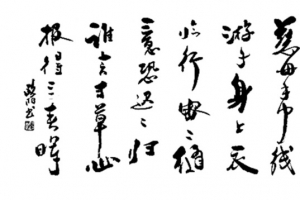 慈母手中线
游子身上衣
临行密密缝
意恐迟迟归
谁言寸草心
报得三春晖